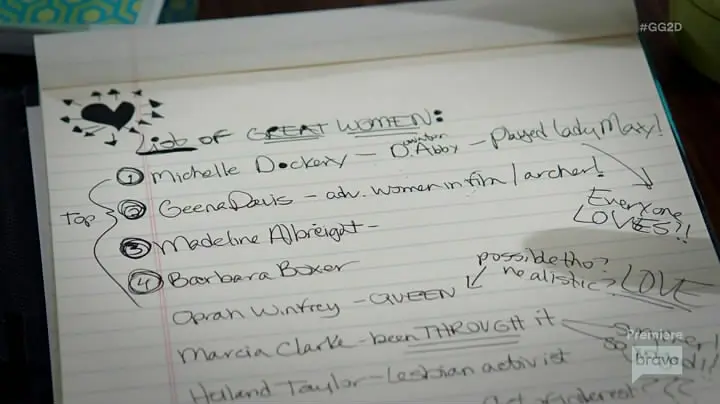 #GG2D
List OF GREAT WOMEN:
① Michelle Dockery — D. Abby — played lady Mary!
ownton
Top ② Geena Davis — adv. women in film / archer!
Everyone
LOVES?!
③ Madeline Albreight —
④ Barbara Boxer
possible tho?
realistic? LOVE
Oprah Winfrey — QUEEN
Marcia Clarke — been THROUGH it
Holland Taylor — Lesbian activist
Premiere
bravo